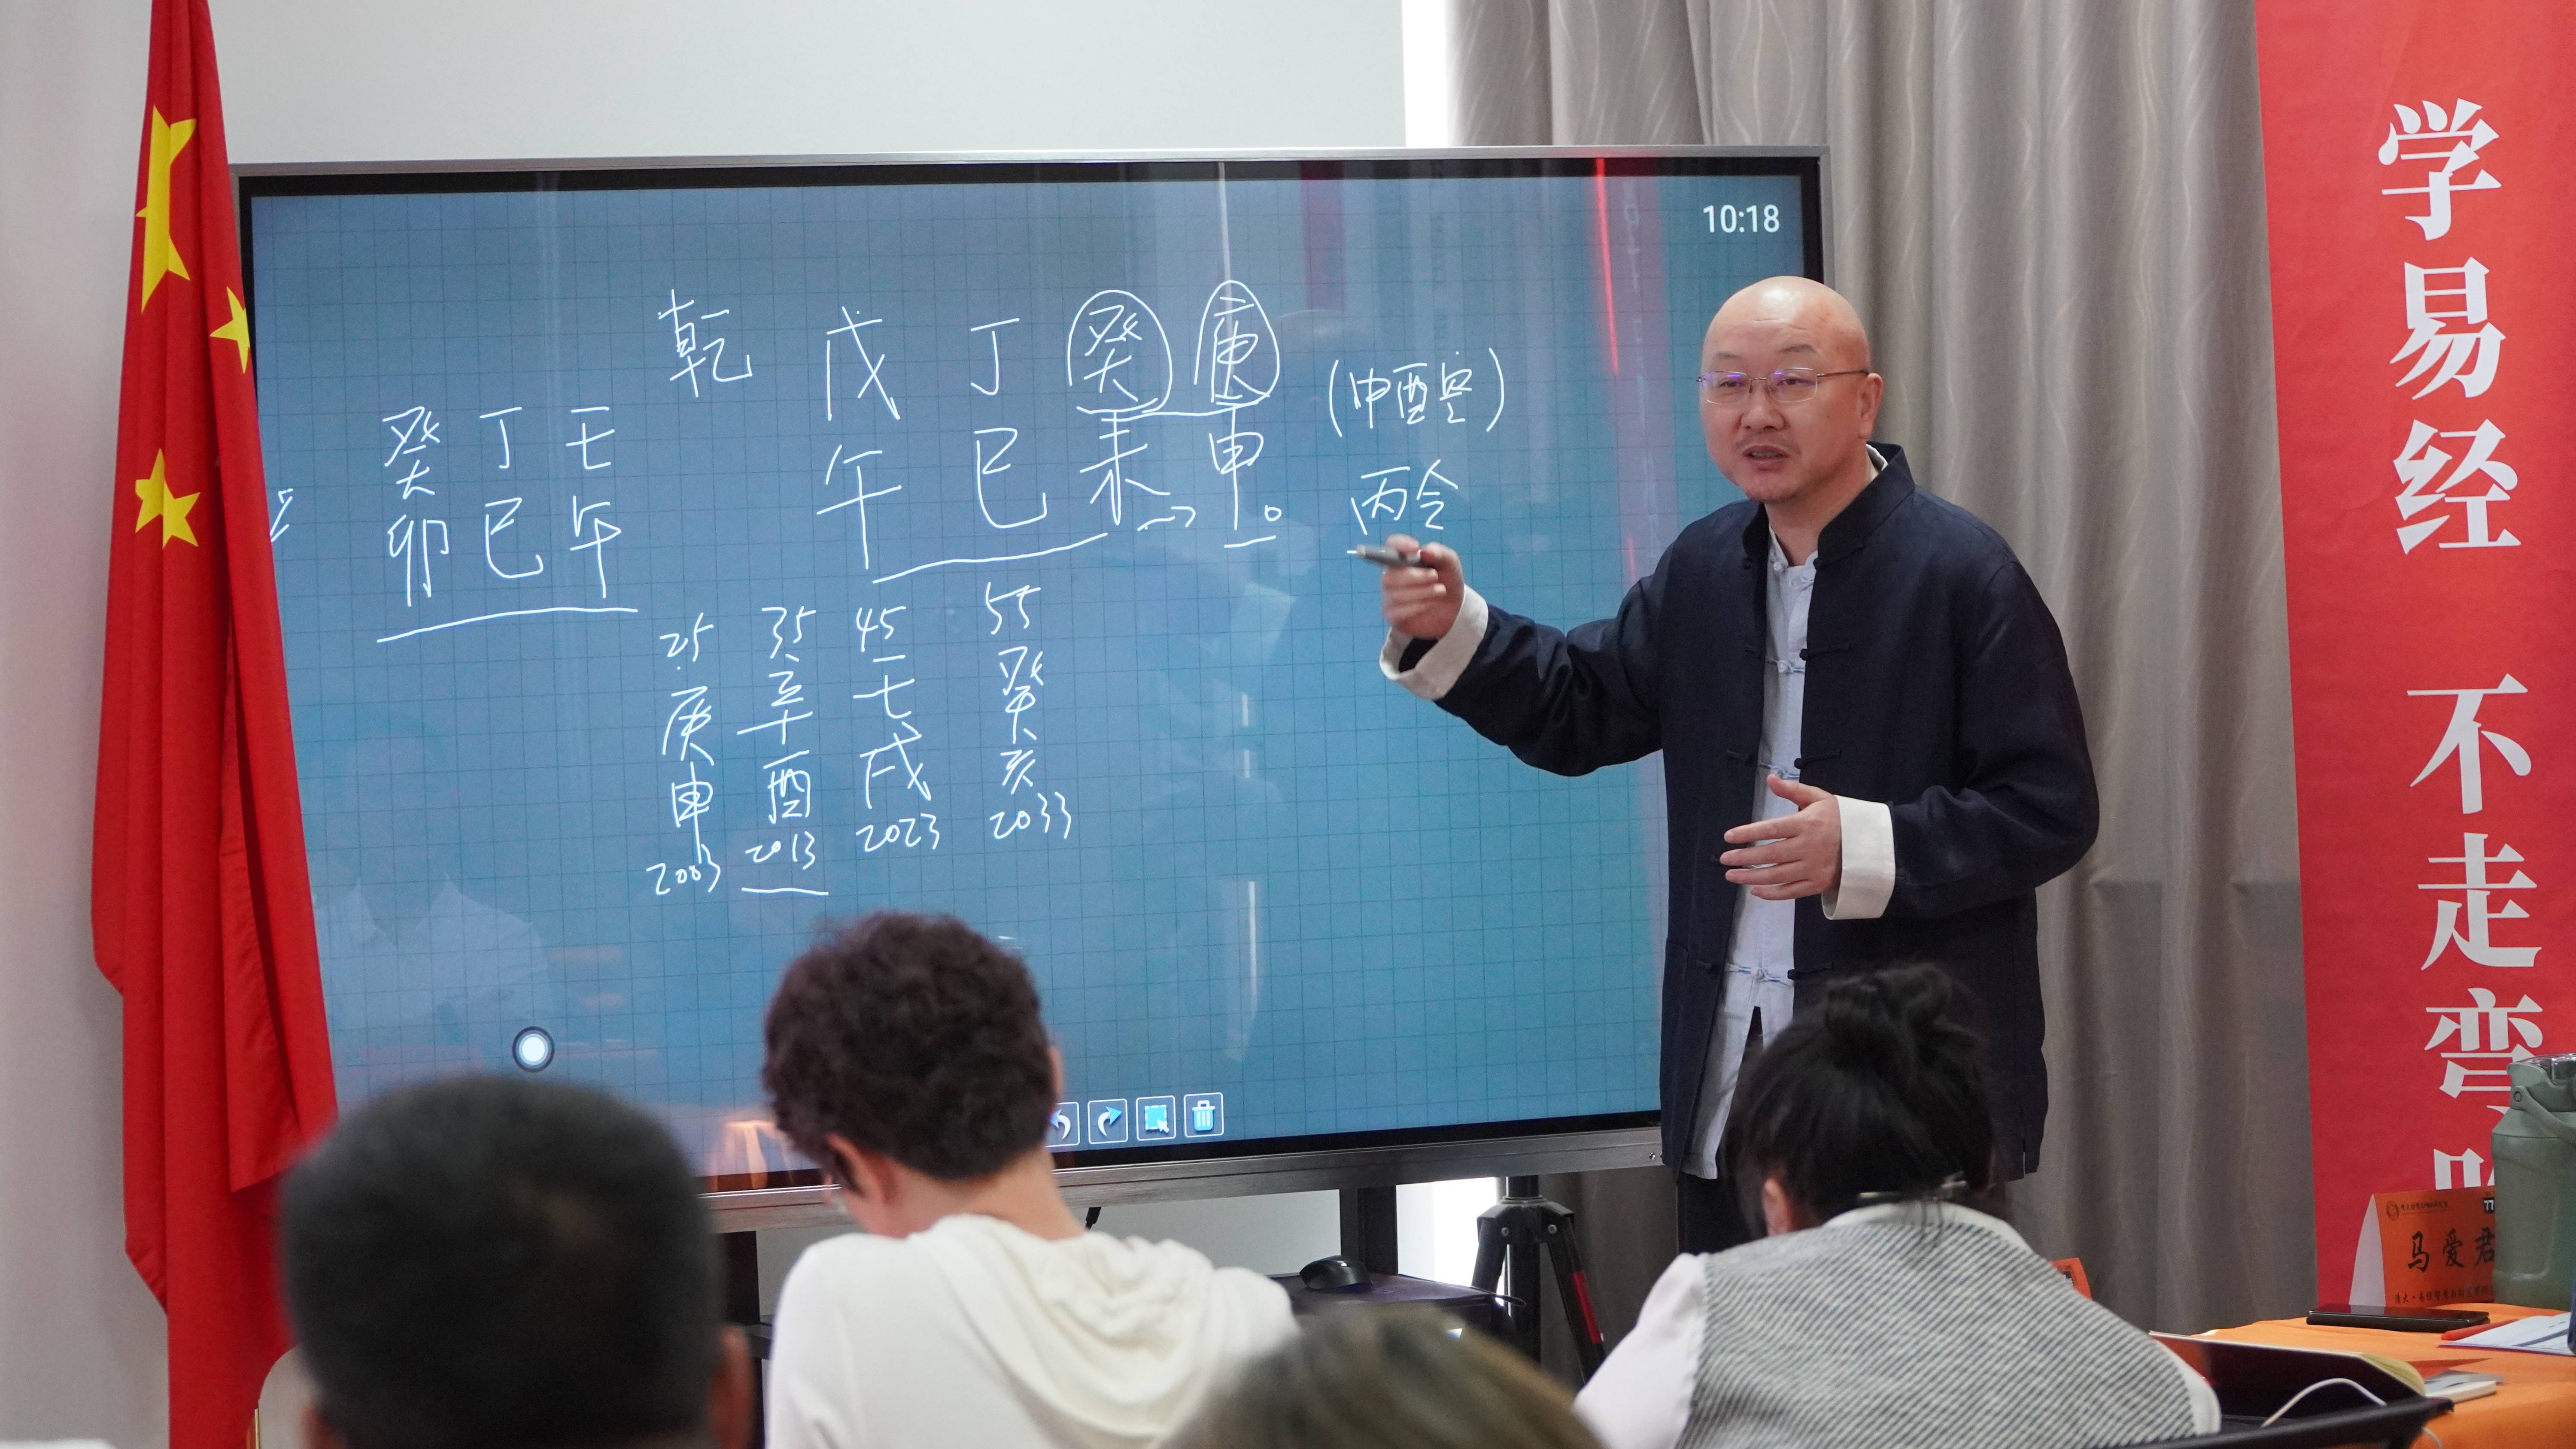 10:18
乾 戊 丁 癸 庚
午 巳 未 申
(申酉空)
丙令
癸 丁 壬
卯 巳 午
25 35 45 55
庚 辛 壬 癸
申 酉 戌 亥
2003 2013 2023 2033
学易经 不走弯
马爱君